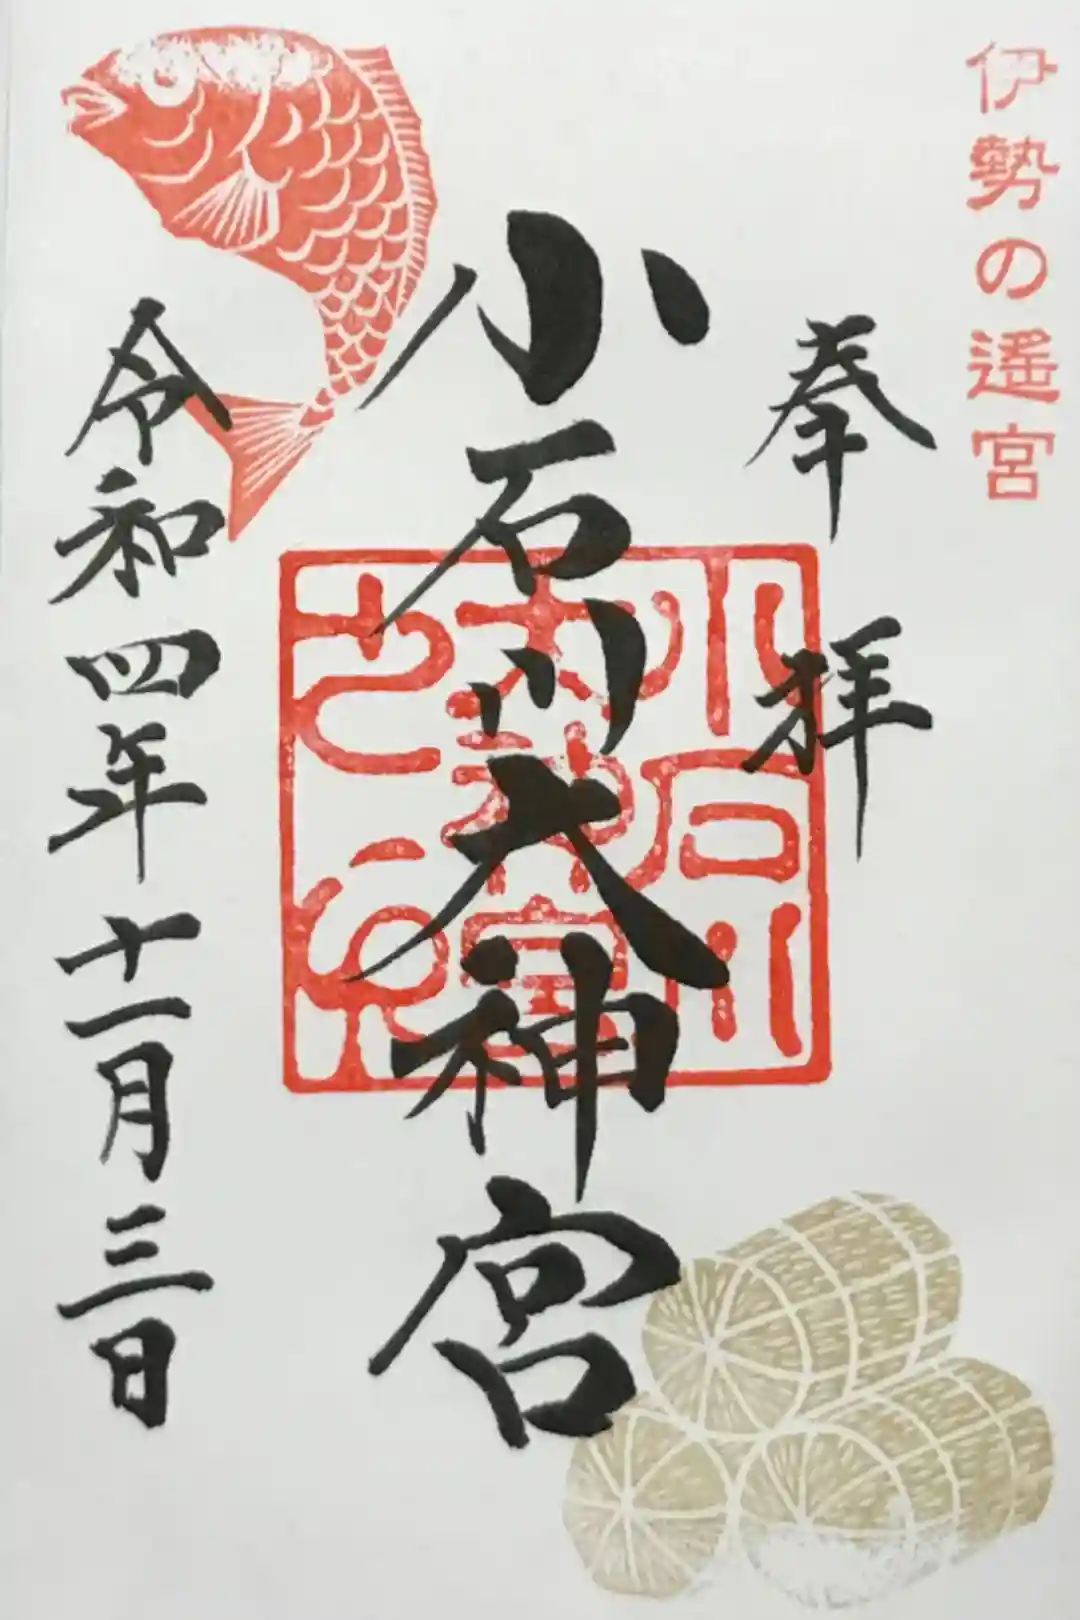 伊勢の遥宮
奉拝
小石川大神宮
小石川
大神宮
之印
令和四年十一月三日